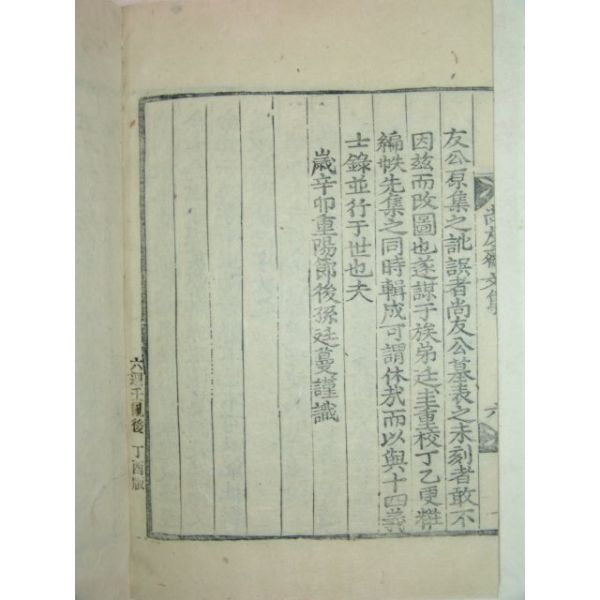 尚友齋文集
六
友公原集之訛誤者尚友公墓表之未刻者敢不
因玆而改圖也遂謀于族弟廷圭重校丁乙更粧
編帙先集之同時輯成可謂休哉而以與十四義
士錄並行于世也夫
歲辛卯重陽節後孫廷蔓謹識